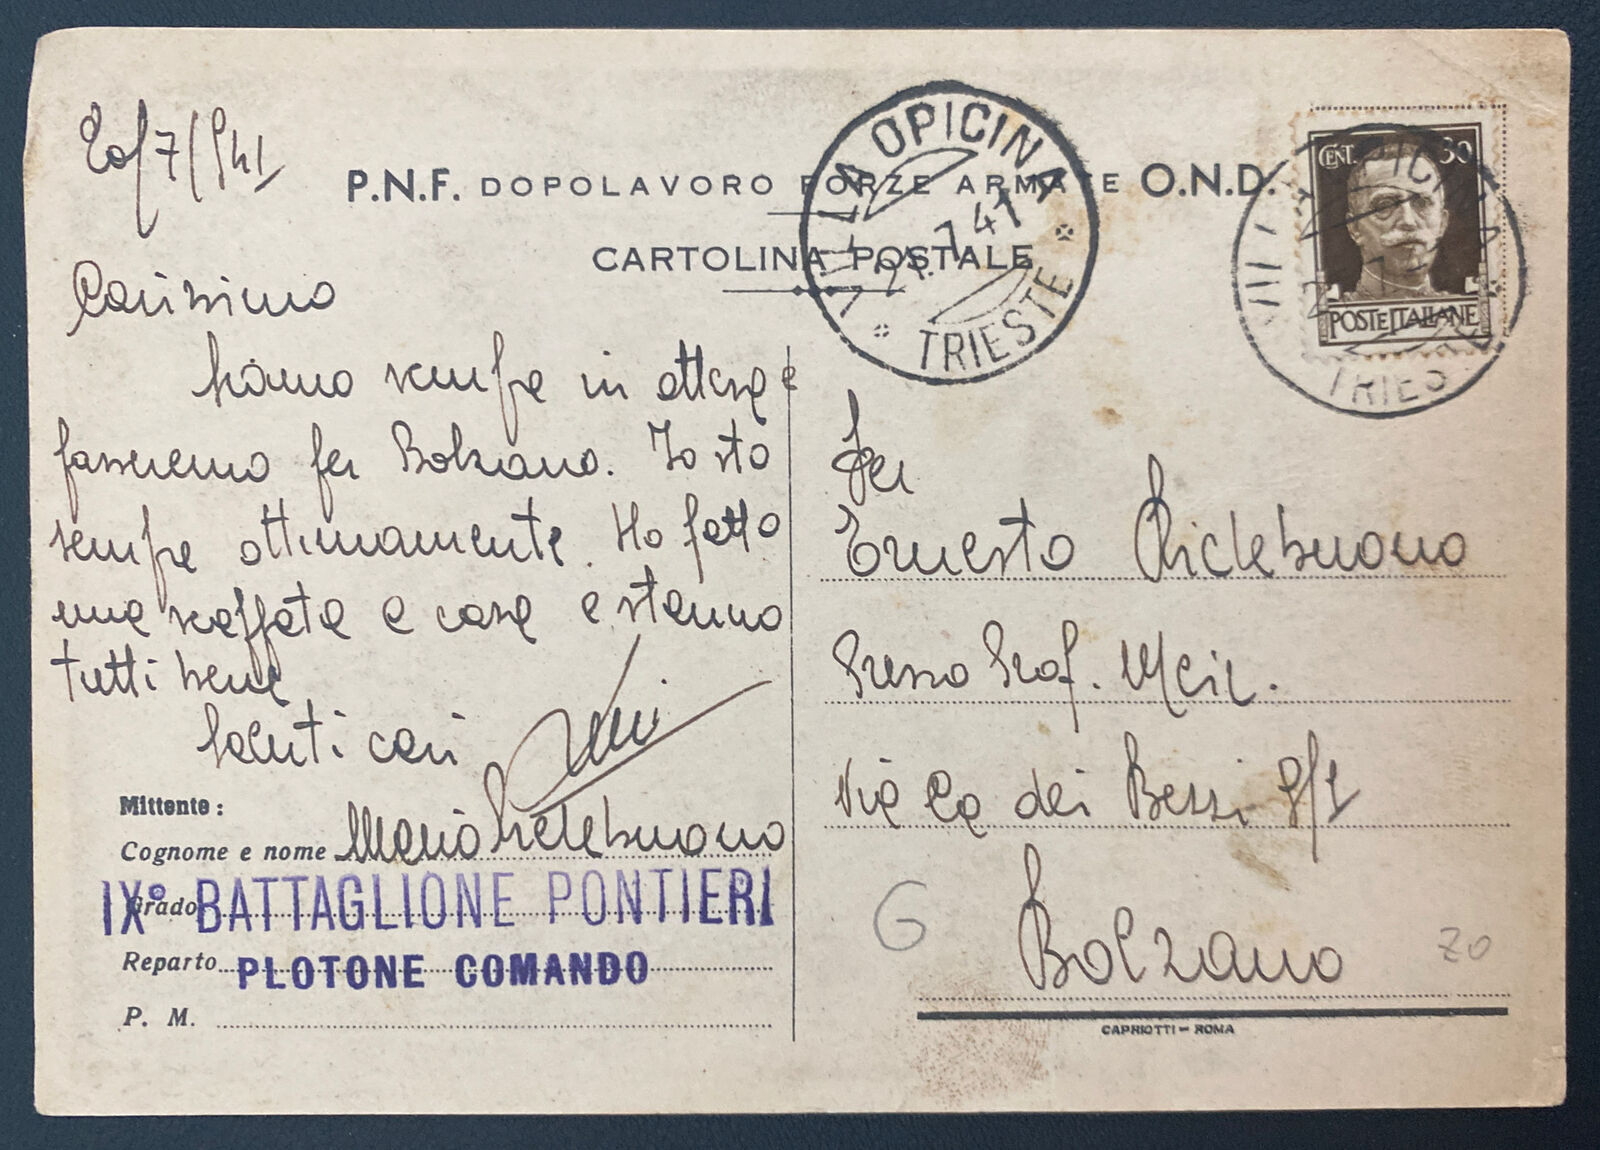 20/7/941
P.N.F. DOPOLAVORO FORZE ARMATE O.N.D.
CARTOLINA POSTALE
VILLA OPICINA
21.7.41
TRIESTE
CENT. 30
POSTE ITALIANE
OPICINA
TRIESTE
Carissimo
siamo sempre in attesa e
passeremo per Bolzano. Io sto
sempre ottimamente. Ho fatto
una scappata a casa e stanno
tutti bene
Saluti cari
Mittente:
Cognome e nome Mario
Grado
IX° BATTAGLIONE PONTIERI
Reparto PLOTONE COMANDO
P. M.
Per
Ernesto
Presso Prof.
Via Ca dei Bezzi
Bolzano
G
20
CAPRIOTTI - ROMA